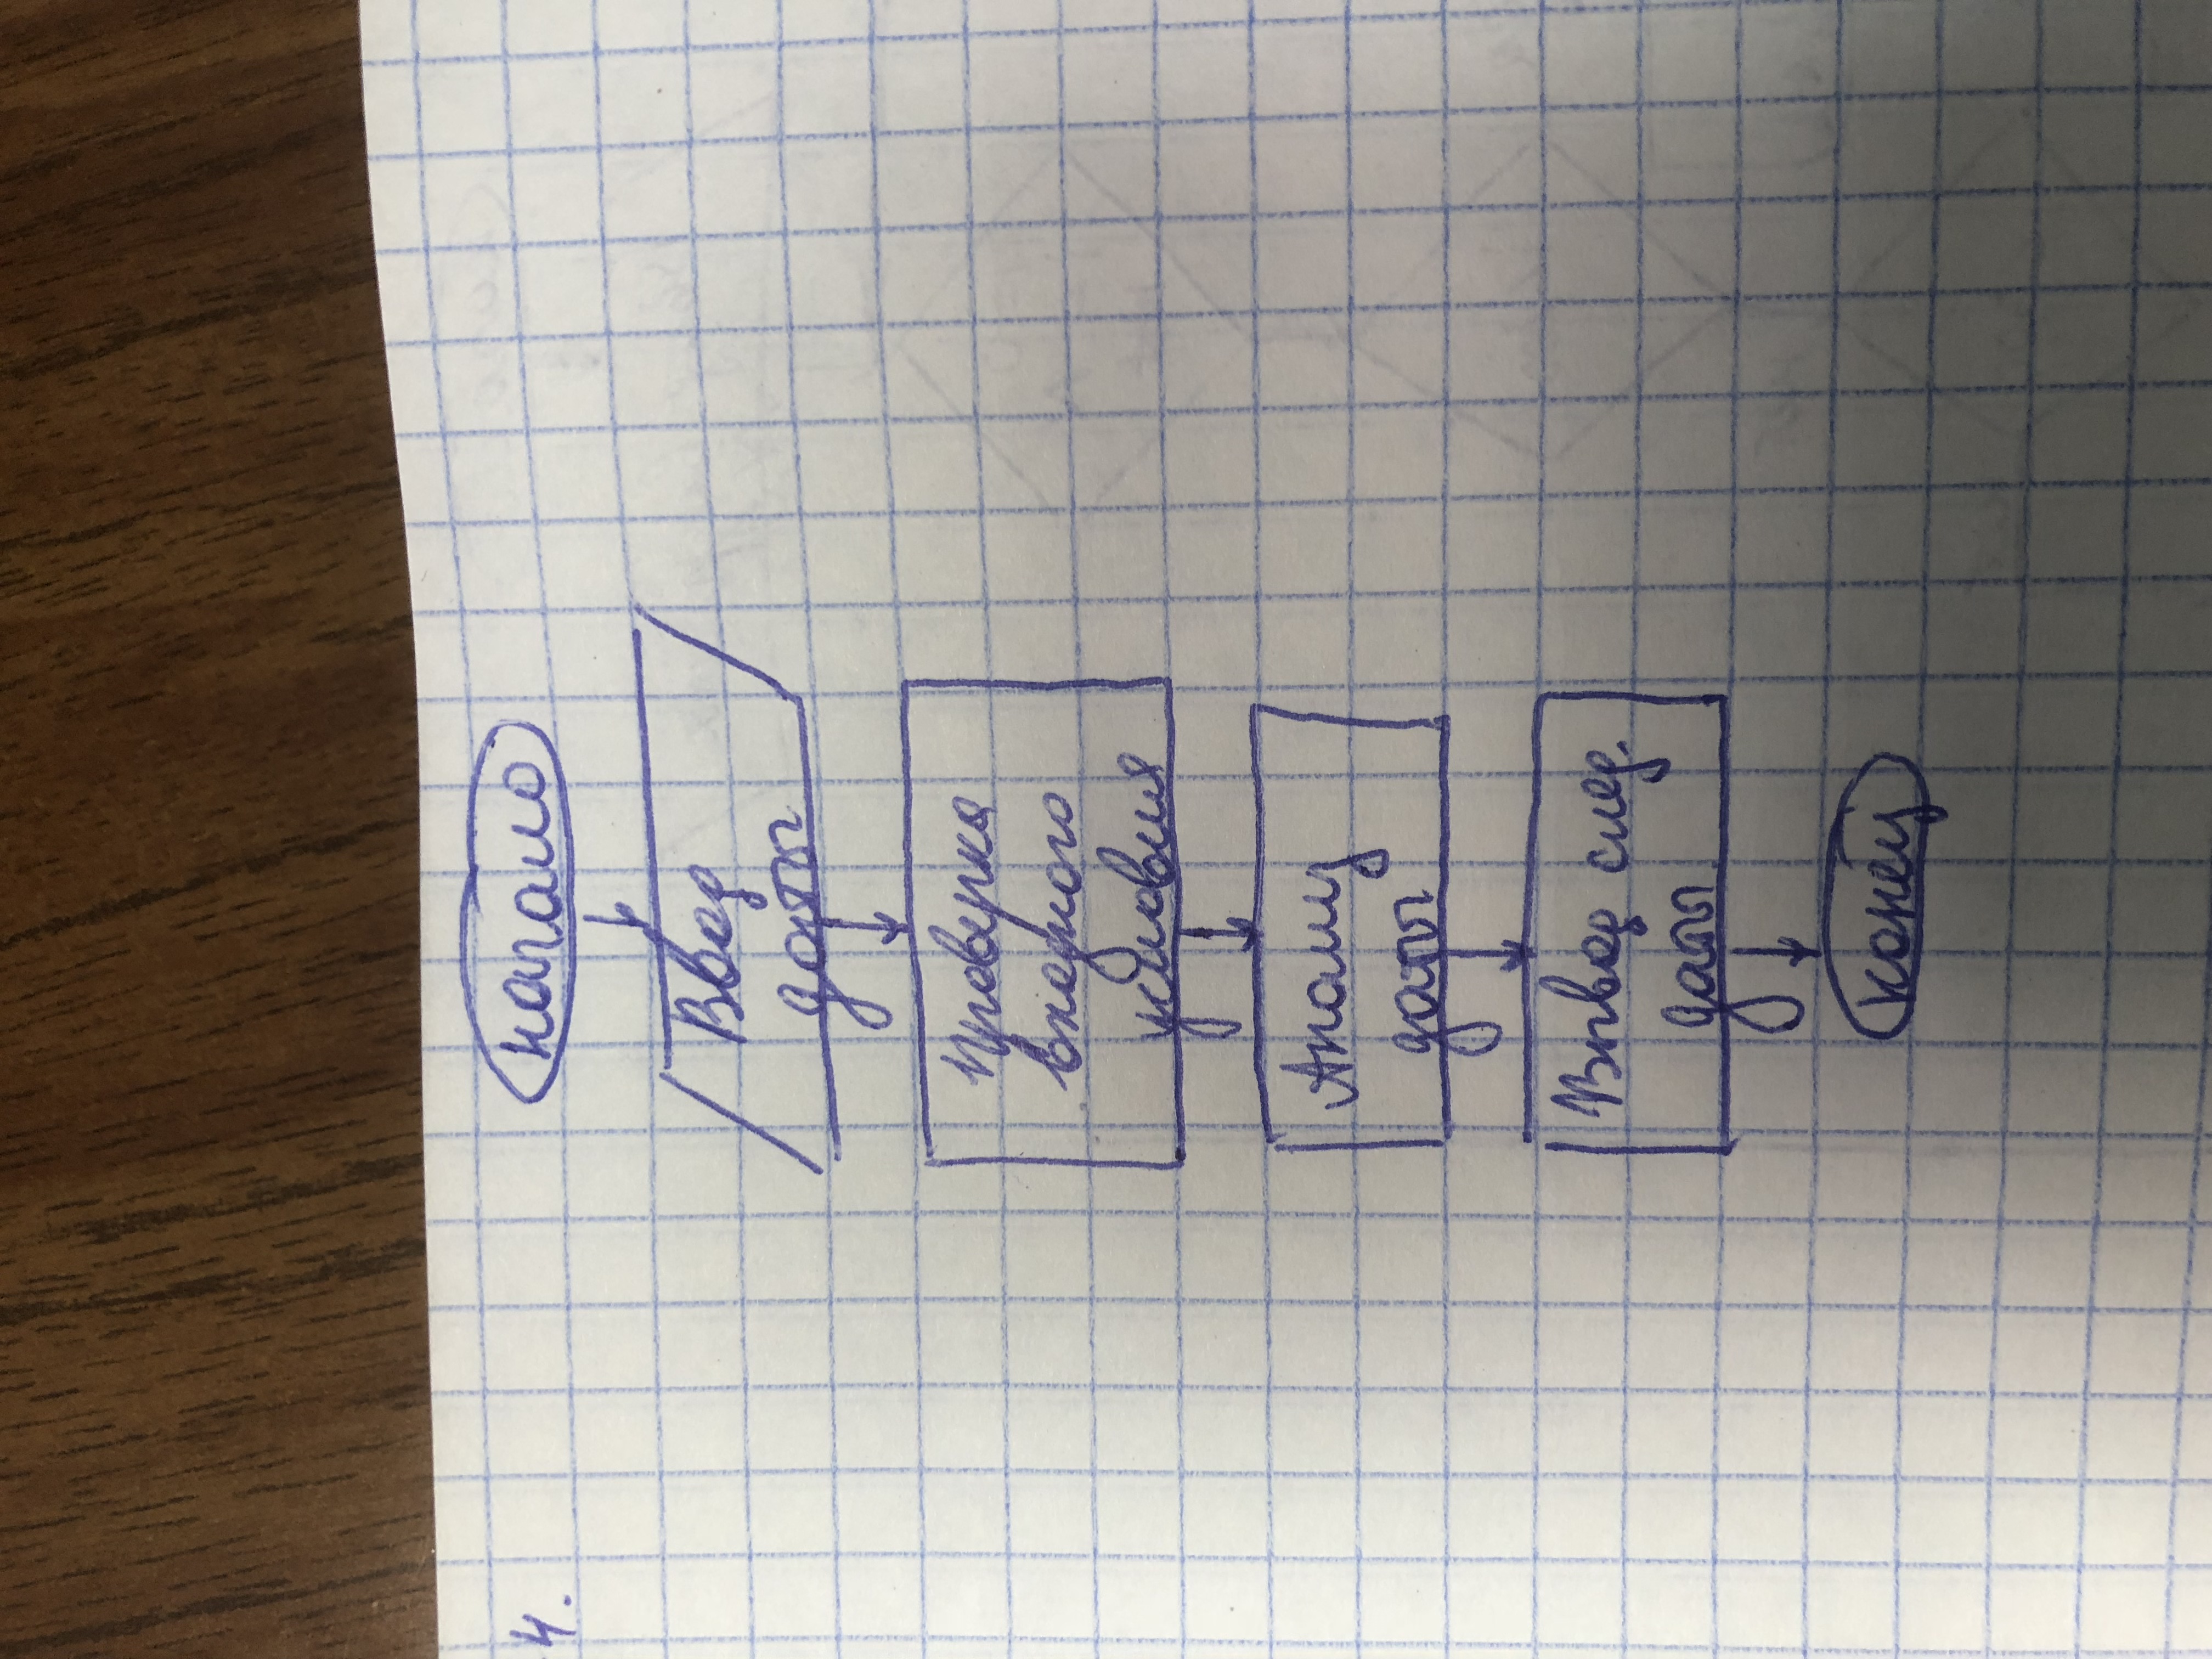 4.
начало
Ввод
даты
Проверка
входного
условия
Анализ
даты
Вывод след.
даты
конец